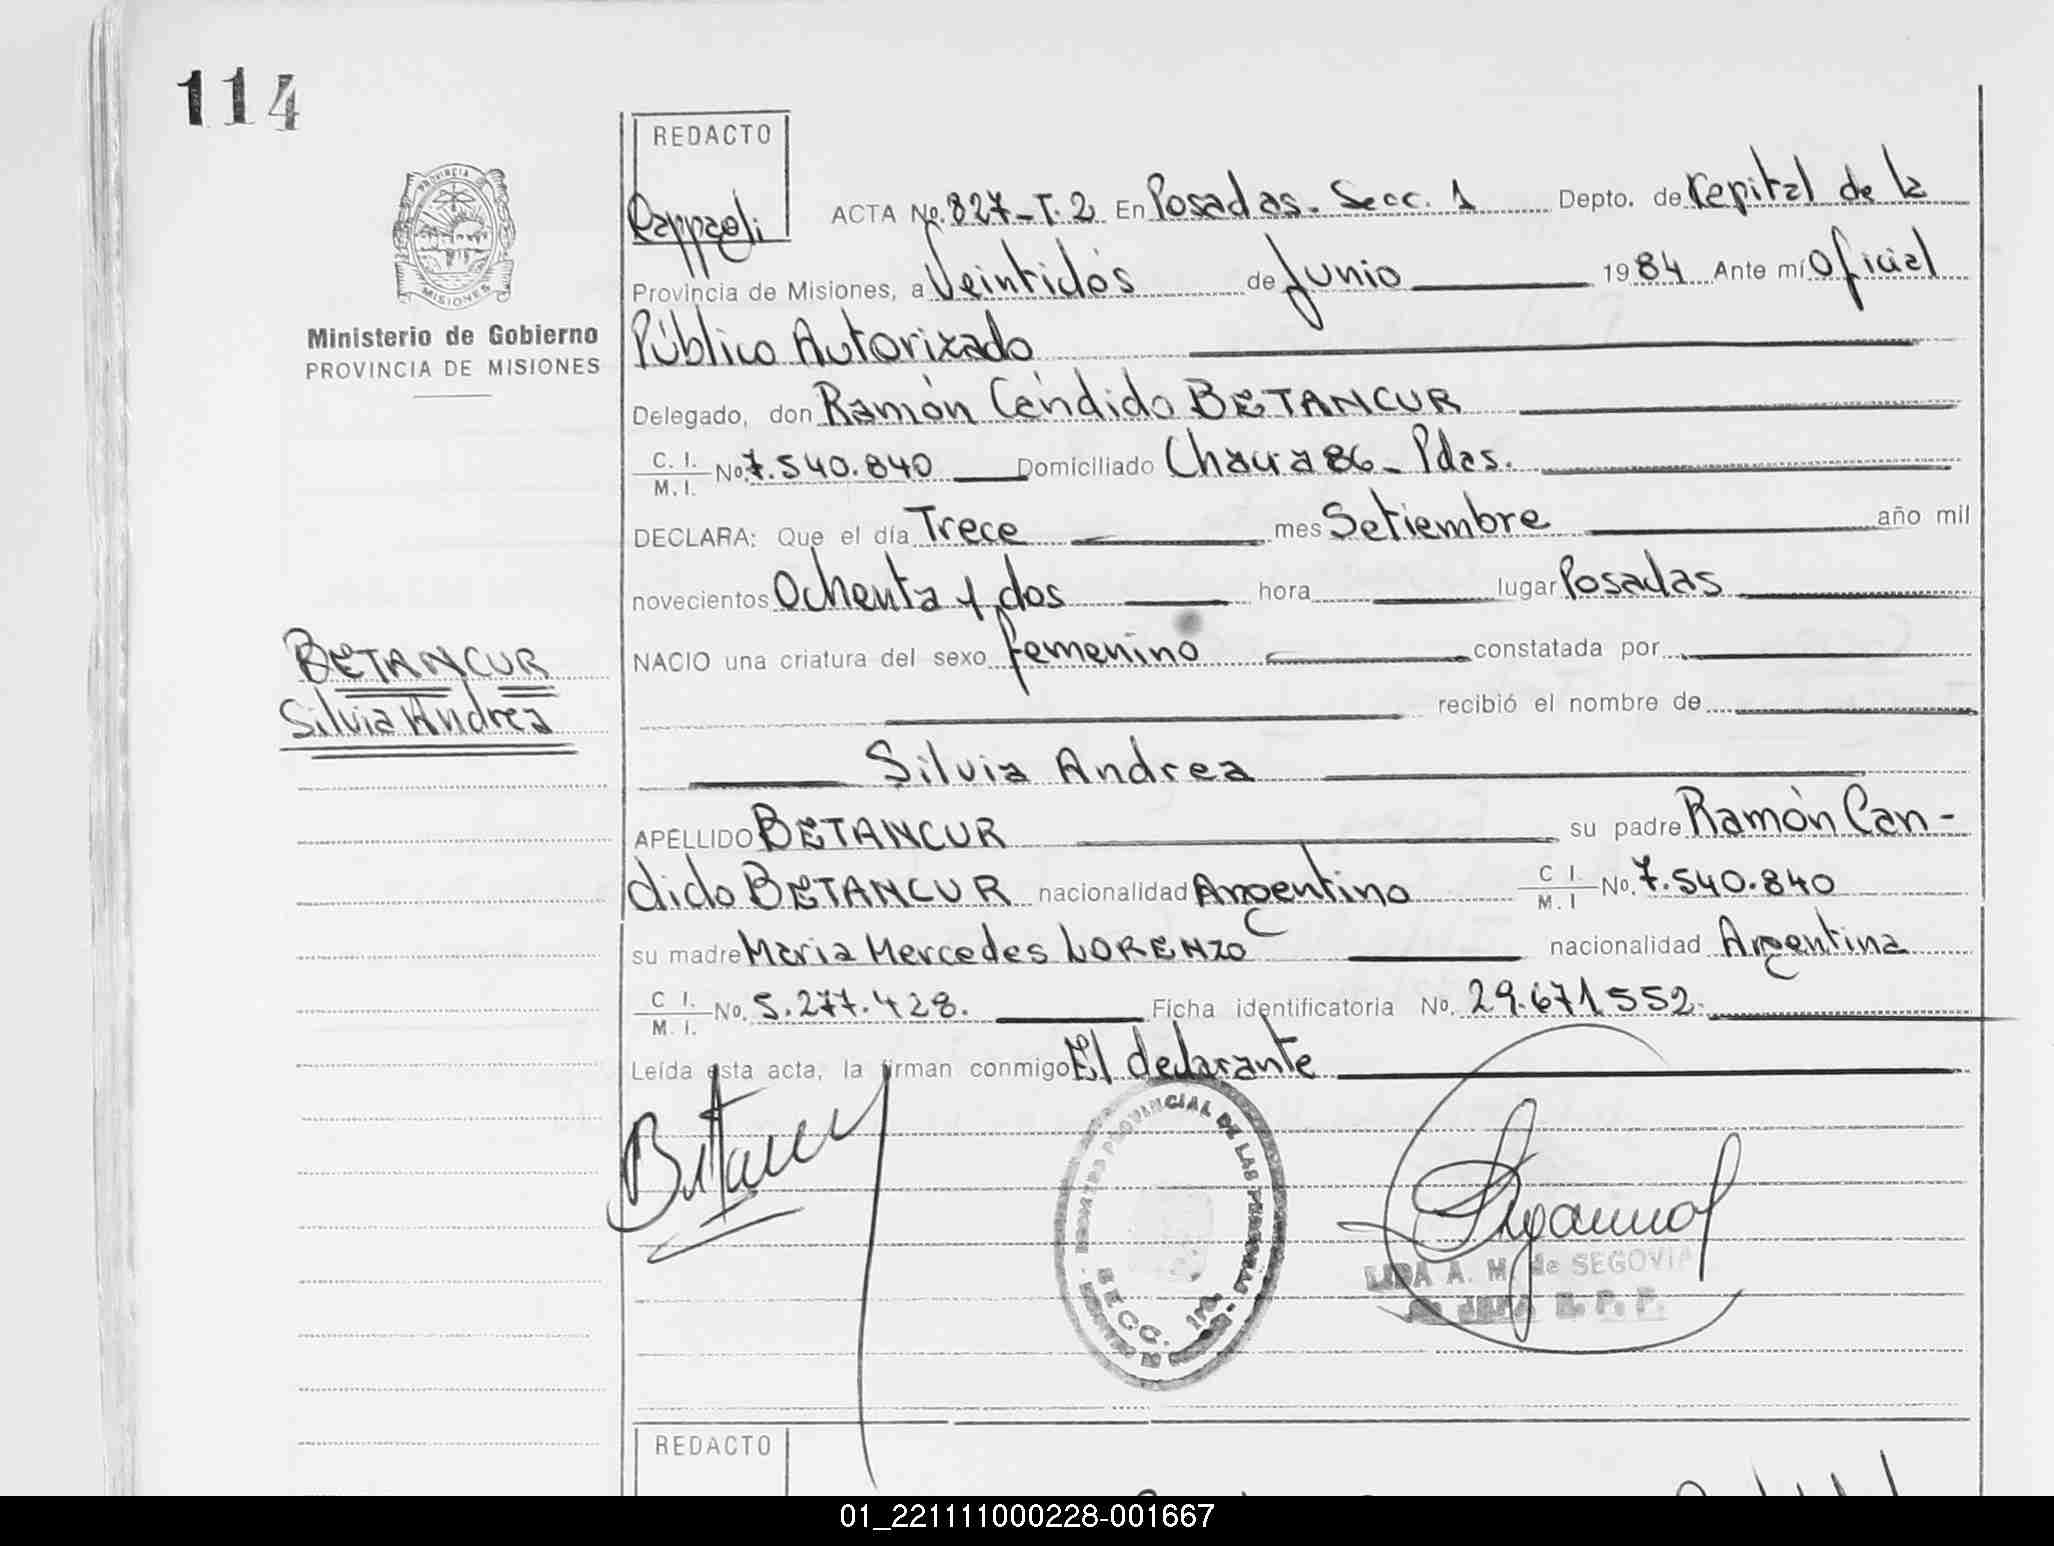 114
REDACTO
Rappaeli
PROVINCIA
MISIONES
Ministerio de Gobierno
PROVINCIA DE MISIONES
ACTA No. 827-T.2 En Posadas. Secc. 1 Depto. de Capital de la
Provincia de Misiones, a Veintidós de Junio 1984 Ante mí Oficial
Público Autorizado
Delegado, don Ramón Cándido BETANCUR
C. I. M. I. No. 7.540.840 Domiciliado Chacra 86 - Pdas.
DECLARA: Que el día Trece mes Setiembre año mil
novecientos Ochenta y dos hora lugar Posadas
NACIO una criatura del sexo femenino constatada por
recibió el nombre de
BETANCUR
Silvia Andrea
Silvia Andrea
APELLIDO BETANCUR su padre Ramón Can-
dido BETANCUR nacionalidad Argentino C I. M. I No. 7.540.840
su madre Maria Mercedes LORENZO nacionalidad Argentina
C I. M. I. No. 5.277.428. Ficha identificatoria No. 29.671552.
Leída esta acta, la firman conmigo El declarante
PROVINCIAL DE LAS PERSONAS
SECC. 1ra.
LIDA A. M. de SEGOVIA
JEFA R. P. P.
REDACTO
01_221111000228-001667